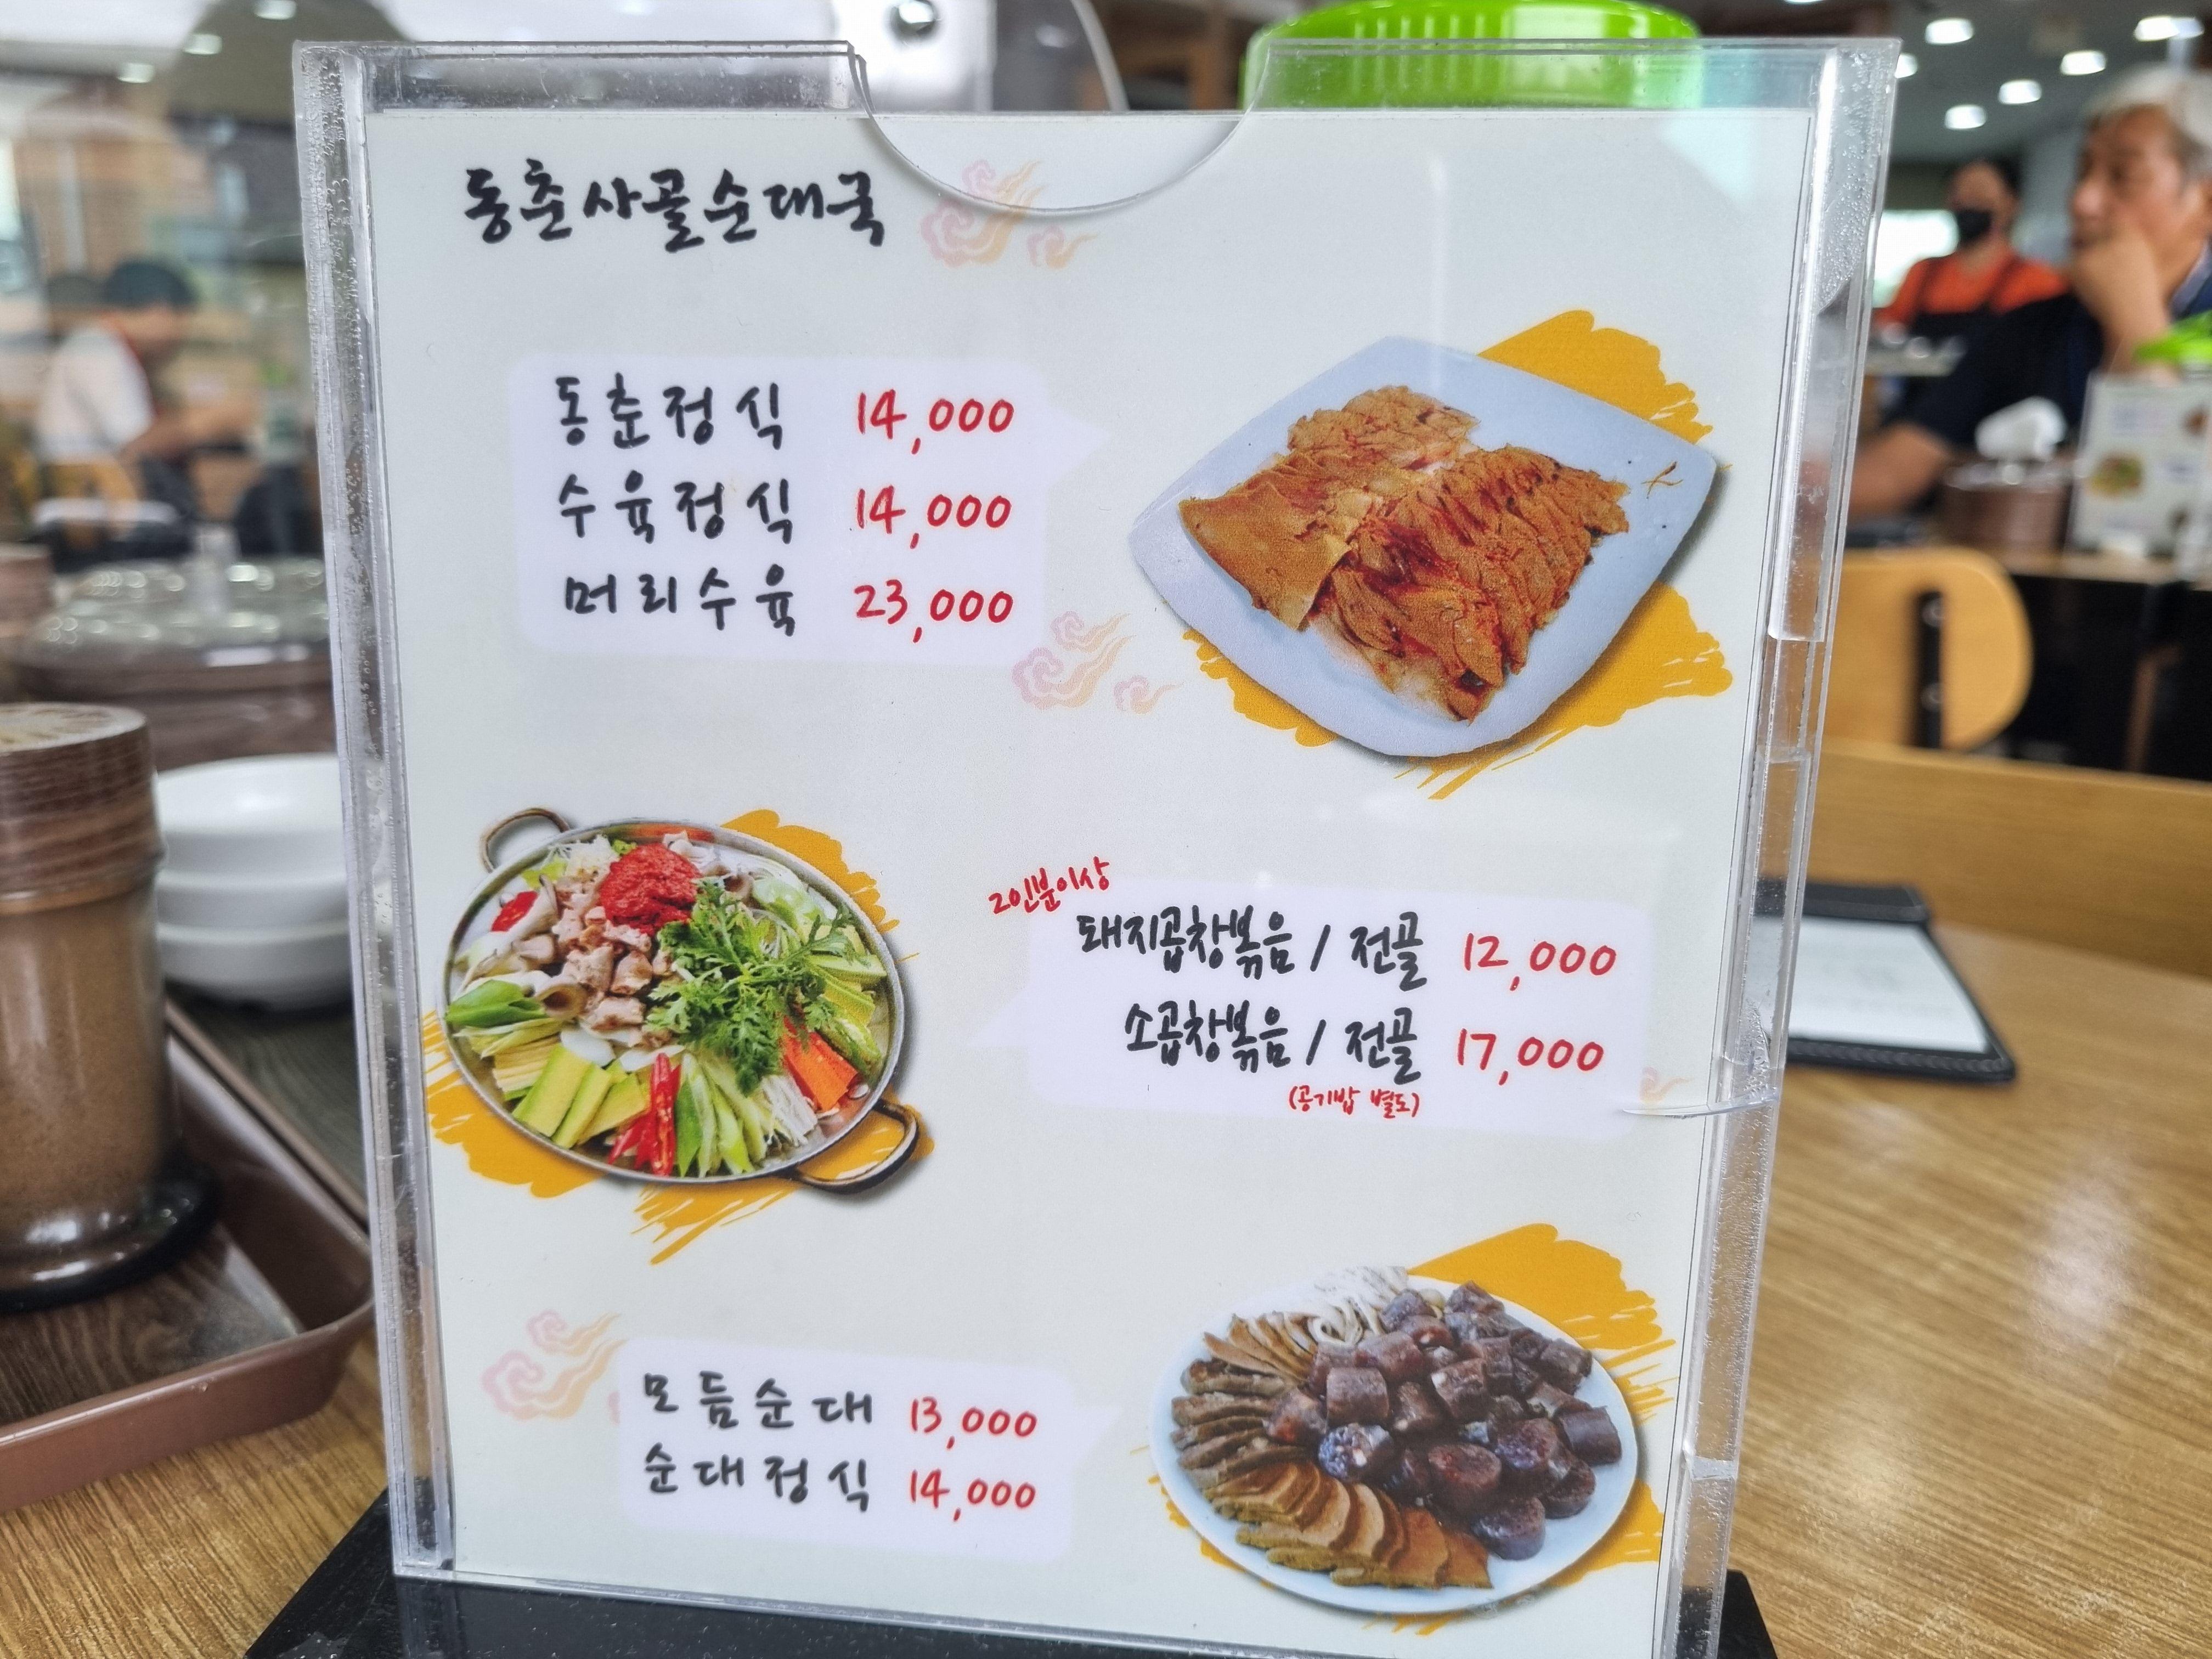 동춘사골순대국
동춘정식 14,000
수육정식 14,000
머리수육 23,000
2인분이상
돼지곱창볶음 / 전골 12,000
소곱창볶음 / 전골 17,000
(공기밥 별도)
모듬순대 13,000
순대정식 14,000